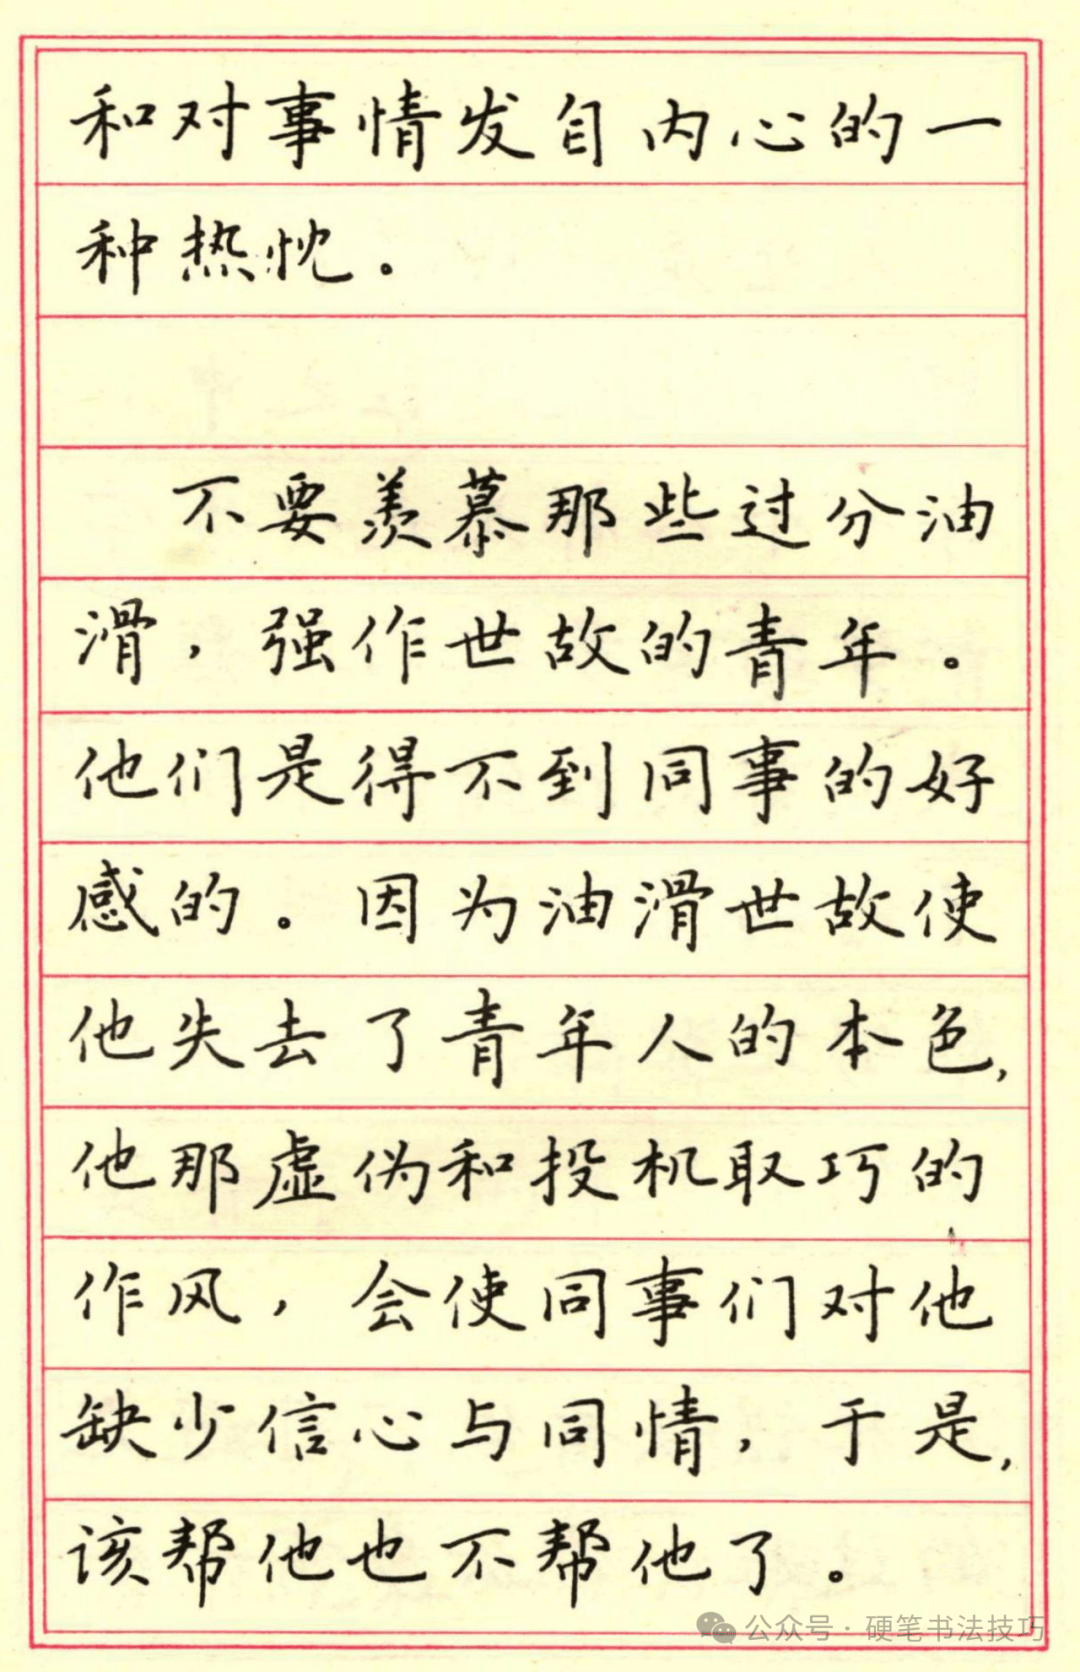 和对事情发自内心的一
种热忱。
不要羡慕那些过分油
滑，强作世故的青年。
他们是得不到同事的好
感的。因为油滑世故使
他失去了青年人的本色，
他那虚伪和投机取巧的
作风，会使同事们对他
缺少信心与同情，于是，
该帮他也不帮他了。
公众号·硬笔书法技巧